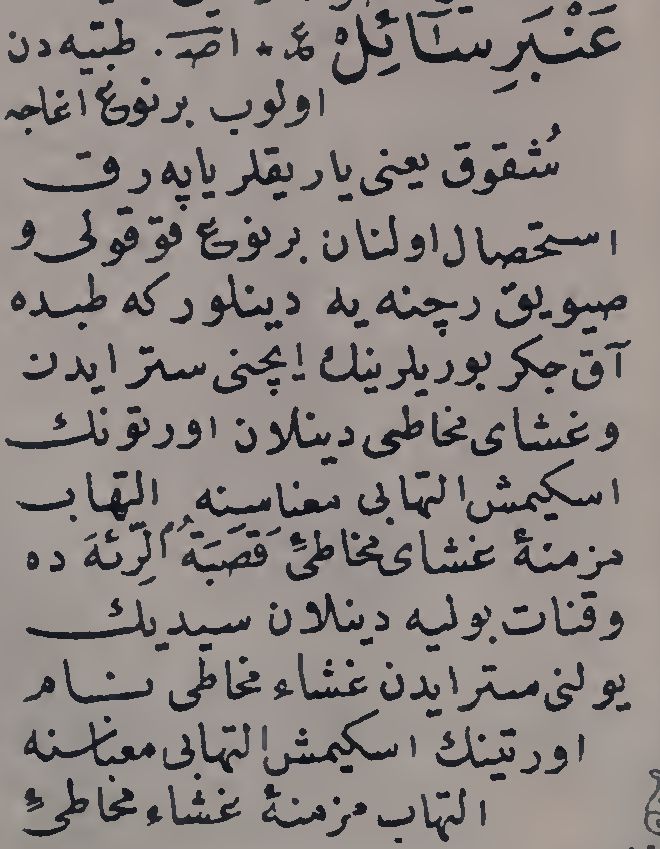 عَنْبَرِ سَآئِلْ ع * اصـ . طبيه دن
اولوب برنوع اغاجه
شُقوق يعنى ياريقلر ياپه رق
استحصال اولنان برنوع قوقولى و
صيويق رچنه يه دينلور كه طبده
آق جكر بوريلرينك ايچنى ستر ايدن
و غشاى مخاطى دينلان اورتونك
اسكيمش التهابى معناسنه التهاب
مزمنهٔ غشاى مخاطئ قَصَبَةُ الرِّئَهَ ده
و قنات بوليه دينلان سيديك
يولنى ستر ايدن غشاء مخاطى نام
اورتينك اسكيمش التهابى معناسنه
التهاب مزمنهٔ غشاء مخاطئ